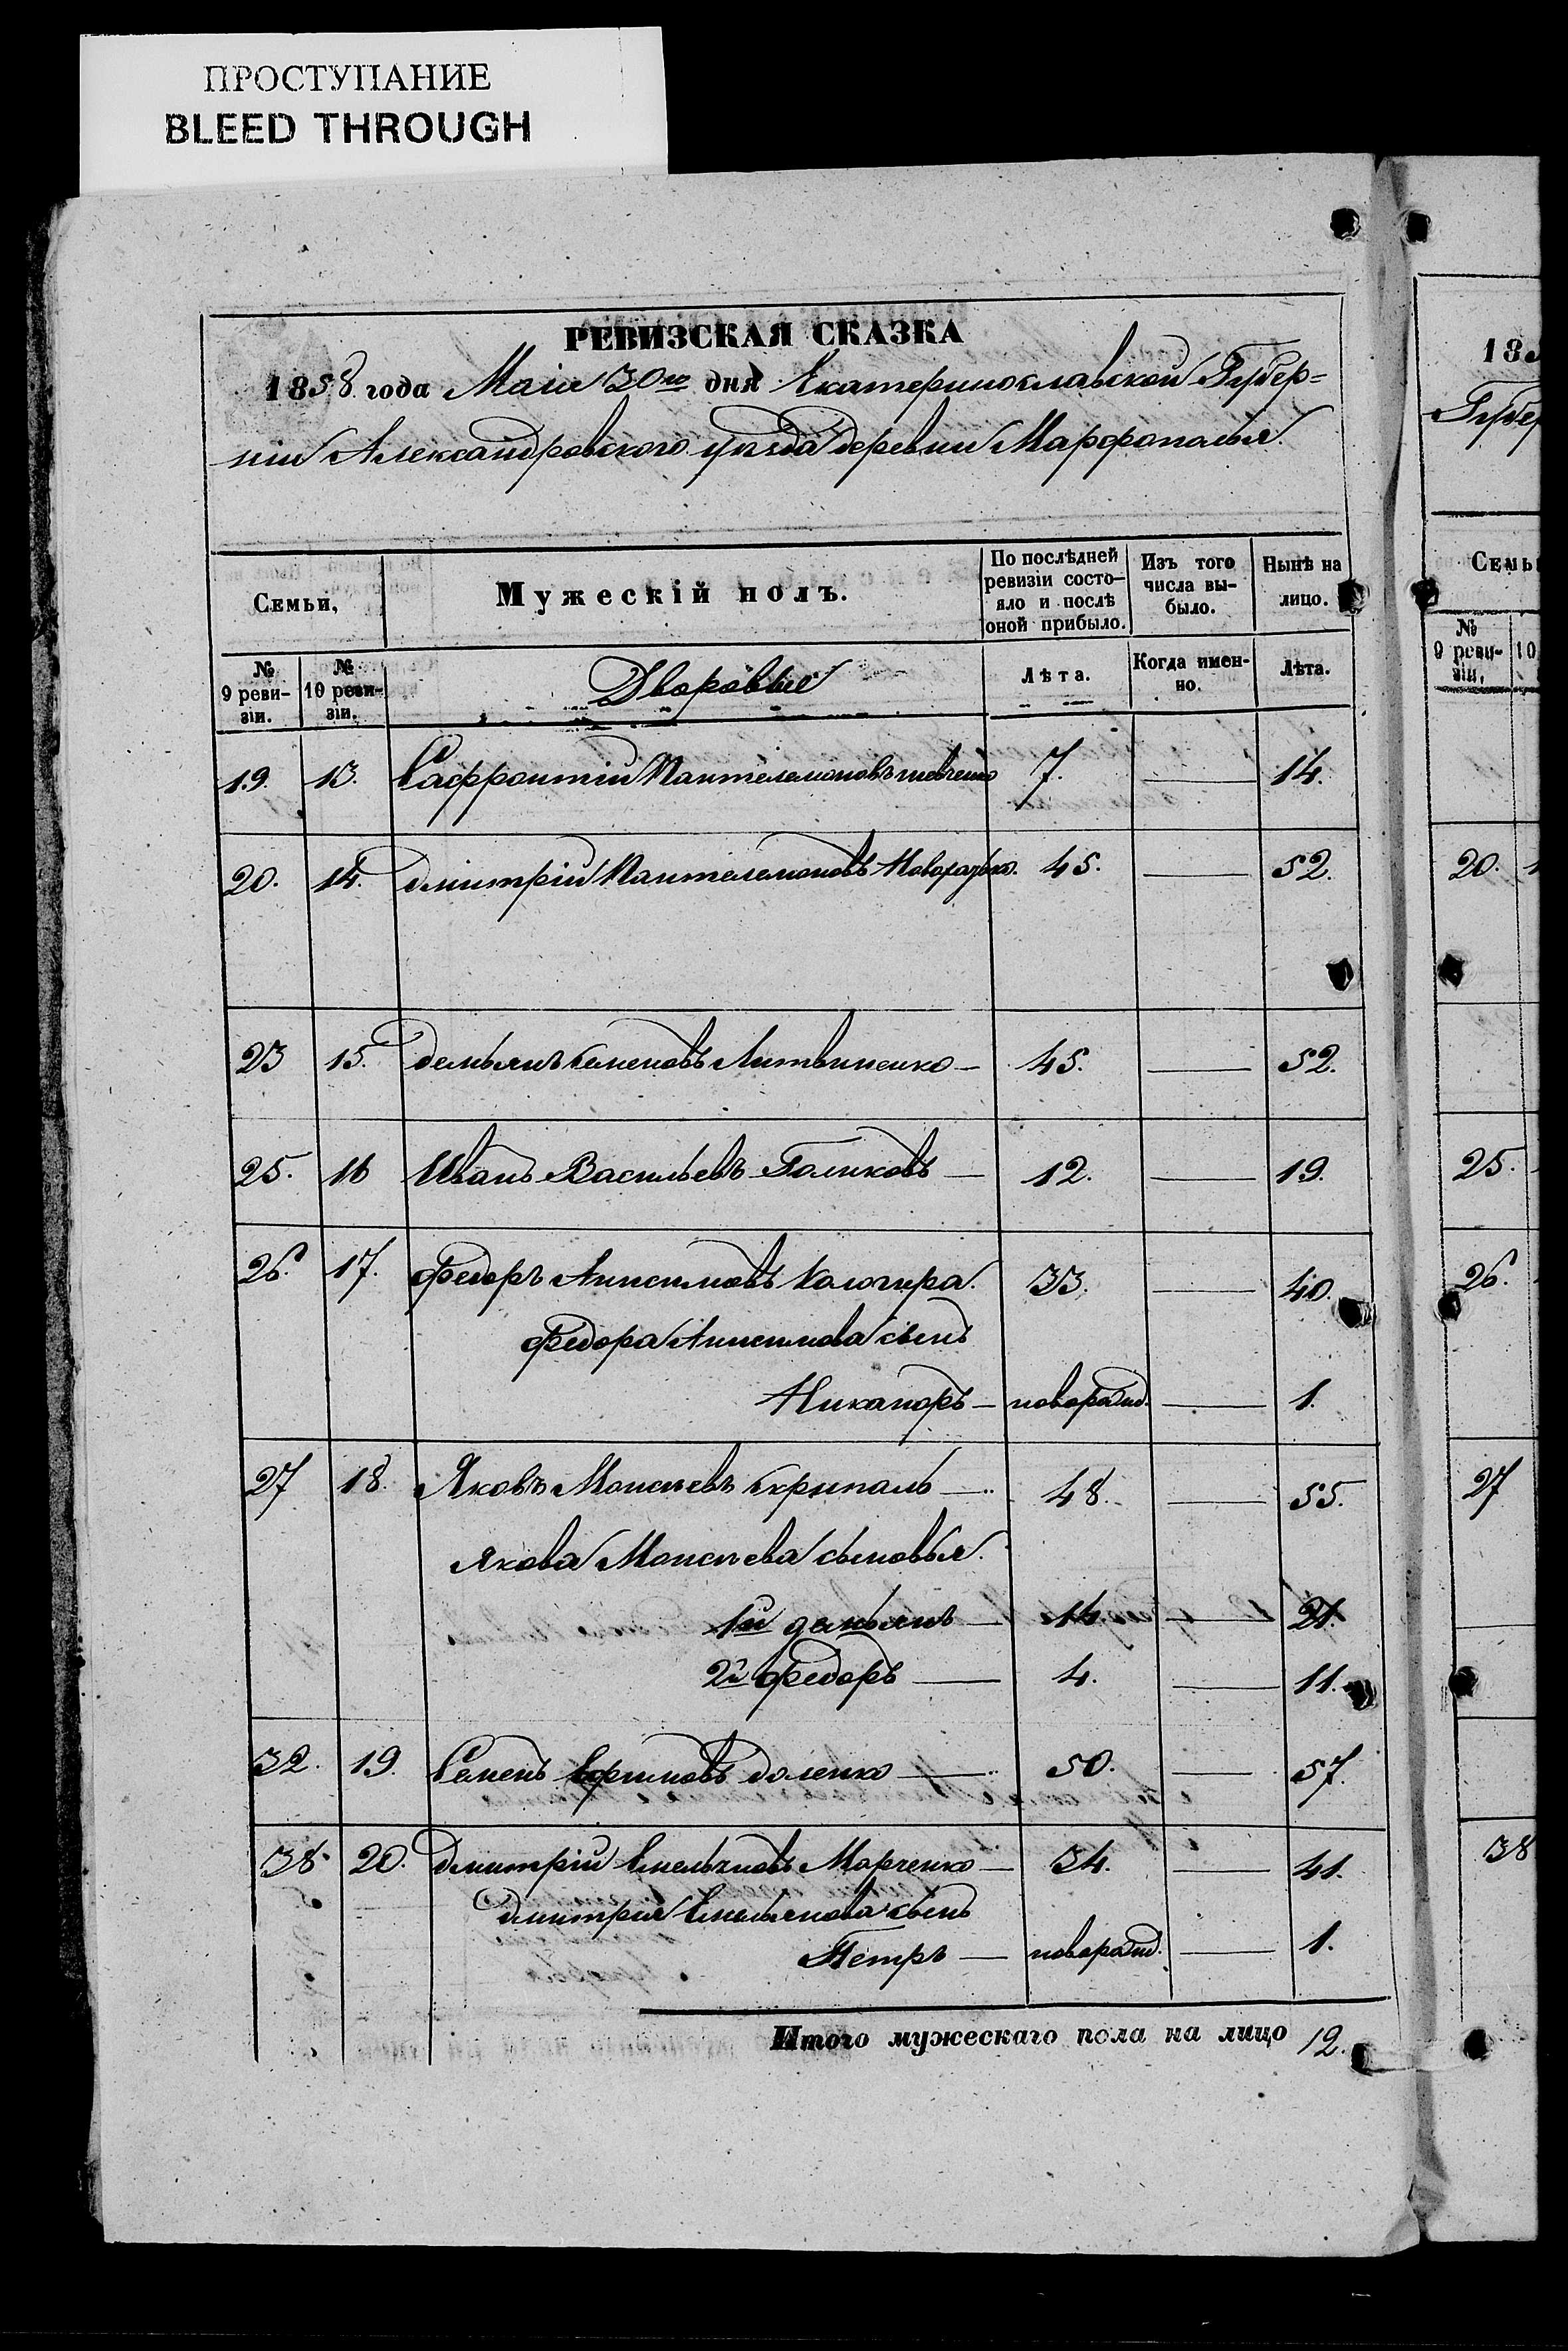 ПРОСТУПАНИЕ
BLEED THROUGH
РЕВИЗСКАЯ СКАЗКА
1858 года Маія 30го дня Екатеринославской Губер=
ніи Александровского уѣзда деревни Марфополья.
Семьи,
Мужескій полъ.
По послѣдней
ревизіи состо-
яло и послѣ
оной прибыло.
Изъ того
числа вы-
было.
Нынѣ на
лицо.
№
9 реви-
зіи.
№
10 реви-
зіи.
Дворовые
Лѣта.
Когда имен-
но.
Лѣта.
19. 13. Сафронтій Пантелемоновъ шевченко 7. — 14.
20. 14. дмитрій Пантелемоновъ 45. — 52.
23 15. демьянъ Семеновъ Литвиненко — 45. — 52.
25. 16 Иванъ Васильевъ Голиковъ — 12. — 19.
26. 17. Федоръ Анисимовъ Калогира. 33. — 40.
Федора Анисимова сынъ
Никаноръ — новорожд. — 1.
27 18. Яковъ Моисѣевъ Скрипаль — 48. — 55.
Якова Моисѣева сыновья.
1й демьянъ — 14. — 21.
2й Федоръ — 4. — 11.
32. 19. Семенъ Ефимовъ доленко — 50. — 57.
38. 20. дмитрій Емельяновъ Марченко — 34. — 41.
дмитрія Емельянова сынъ
Петръ — новорожд. — 1.
Итого мужескаго пола на лицо 12.
185
Губер
Семьи
№
9 реви-
зіи.
10
20.
25.
26.
27
38